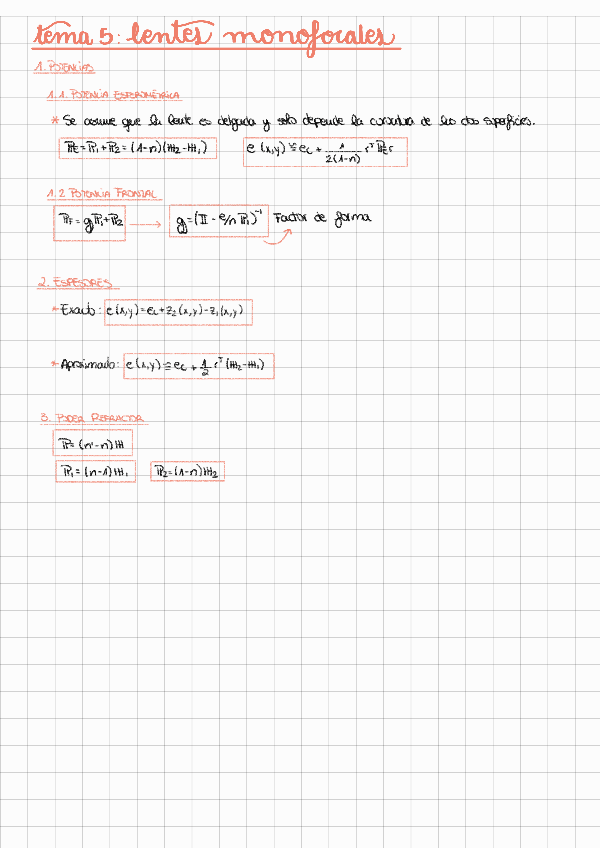 tema 5: lentes monofocales
1. POTENCIAS
1.1. POTENCIA ESFEROMÉTRICA
* Se asume que la lente es delgada y solo depende la curvatura de las dos superficies.
ℙE = ℙ1 + ℙ2 = (1-n)(ℍ2 - ℍ1) e(x,y) ≅ ec + 1/2(1-n) rᵀ ℙE r
1.2 POTENCIA FRONTAL
ℙF = gℙ1 + ℙ2 → g = (𝕀 - e/n ℙ1)⁻¹ Factor de forma
2. ESPESORES
* Exacto: e(x,y) = ec + z2(x,y) - z1(x,y)
* Aproximado: e(x,y) ≅ ec + 1/2 rᵀ (ℍ2 - ℍ1)
3. PODER REFRACTOR
ℙ = (n' - n)ℍ
ℙ1 = (n-1)ℍ1 ℙ2 = (1-n)ℍ2